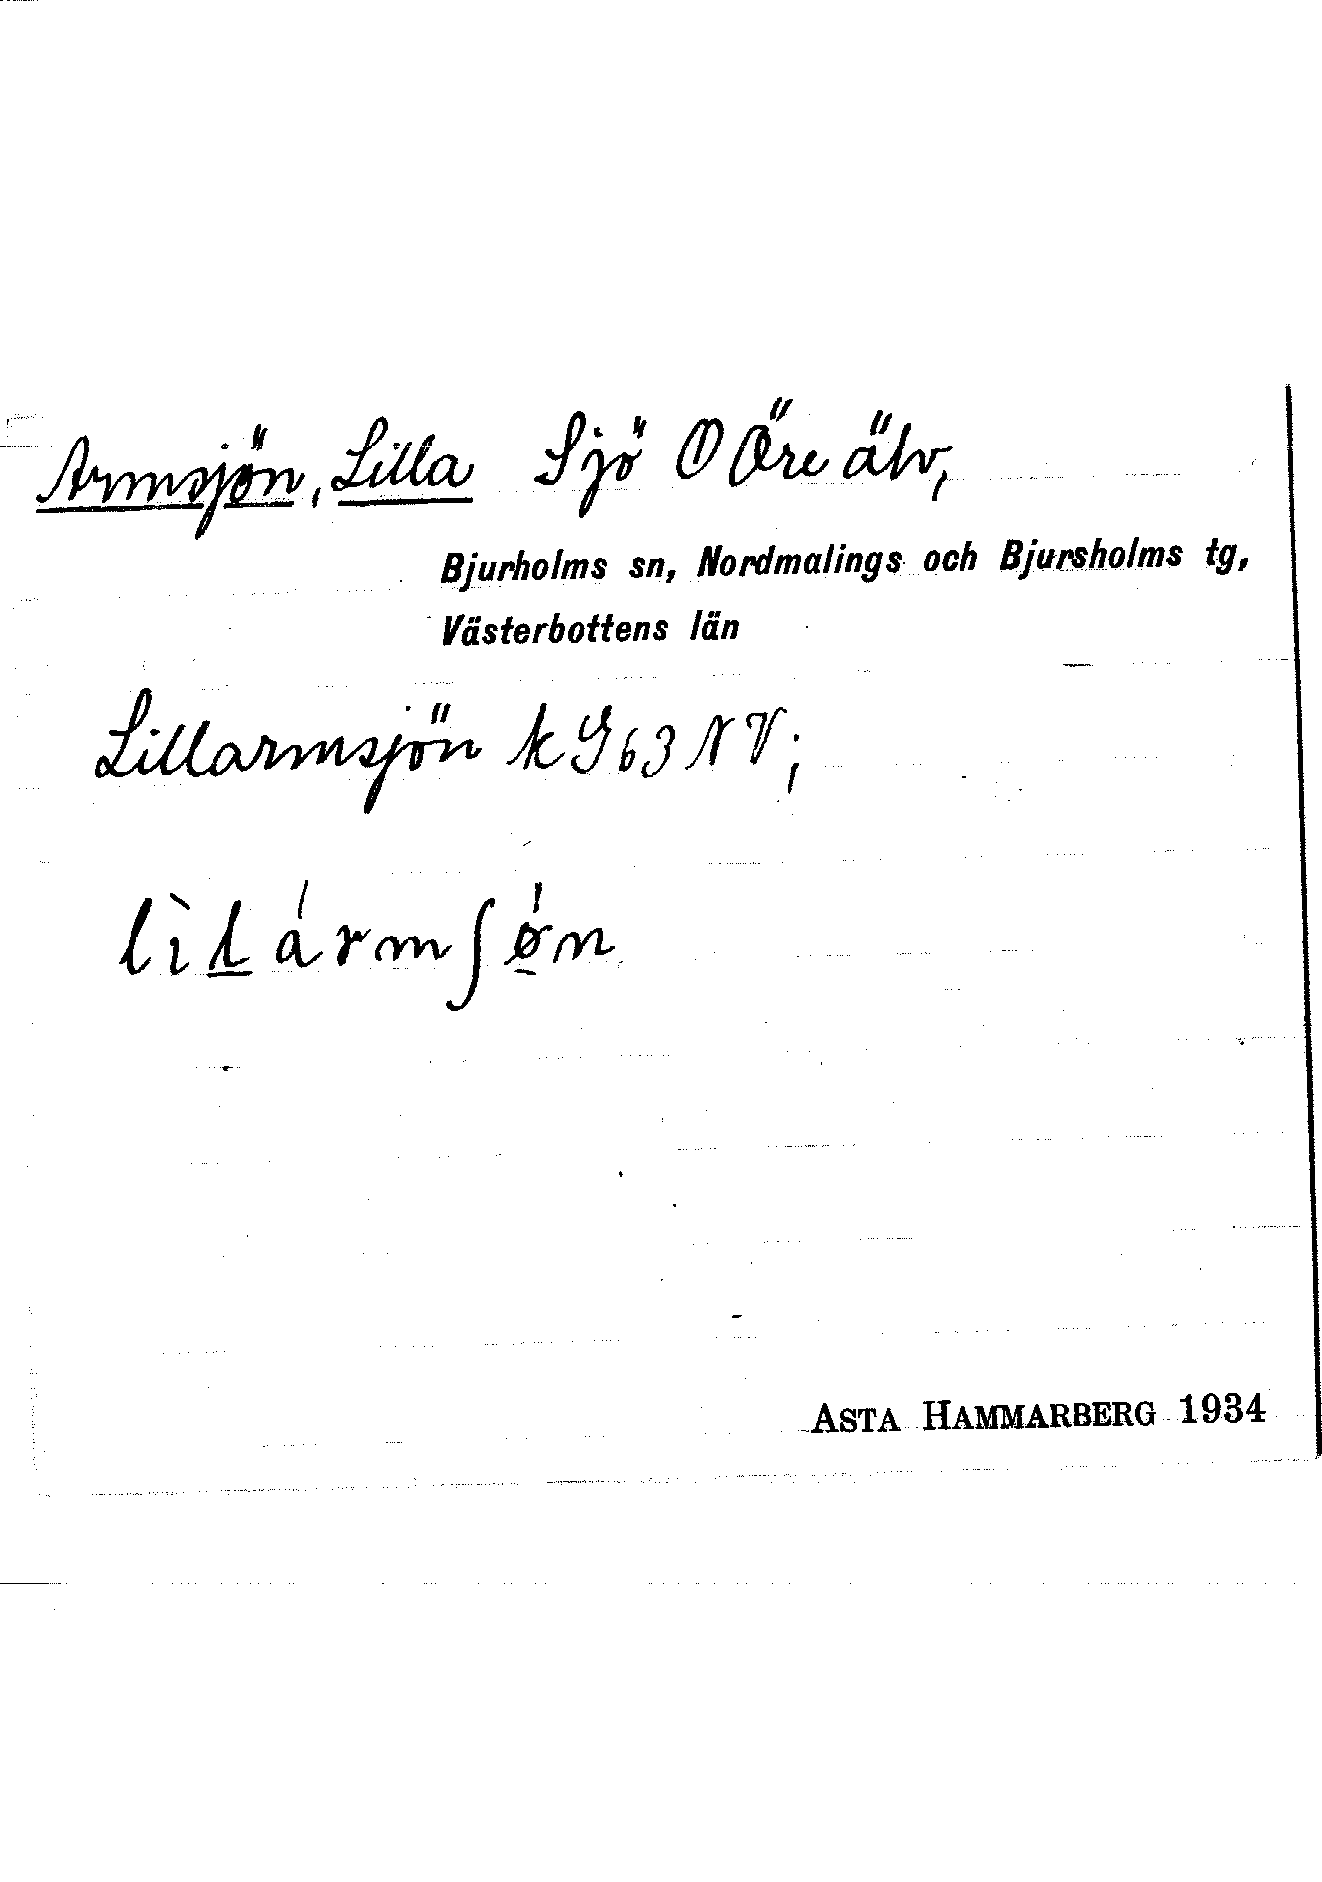 Armsjön, Lilla Sjö O Öre älv,
Bjurholms sn, Nordmalings och Bjursholms tg,
Västerbottens län
Lillarmsjön k G 63 NV;
lìl̲ármʃǿ̠n
ASTA HAMMARBERG 1934